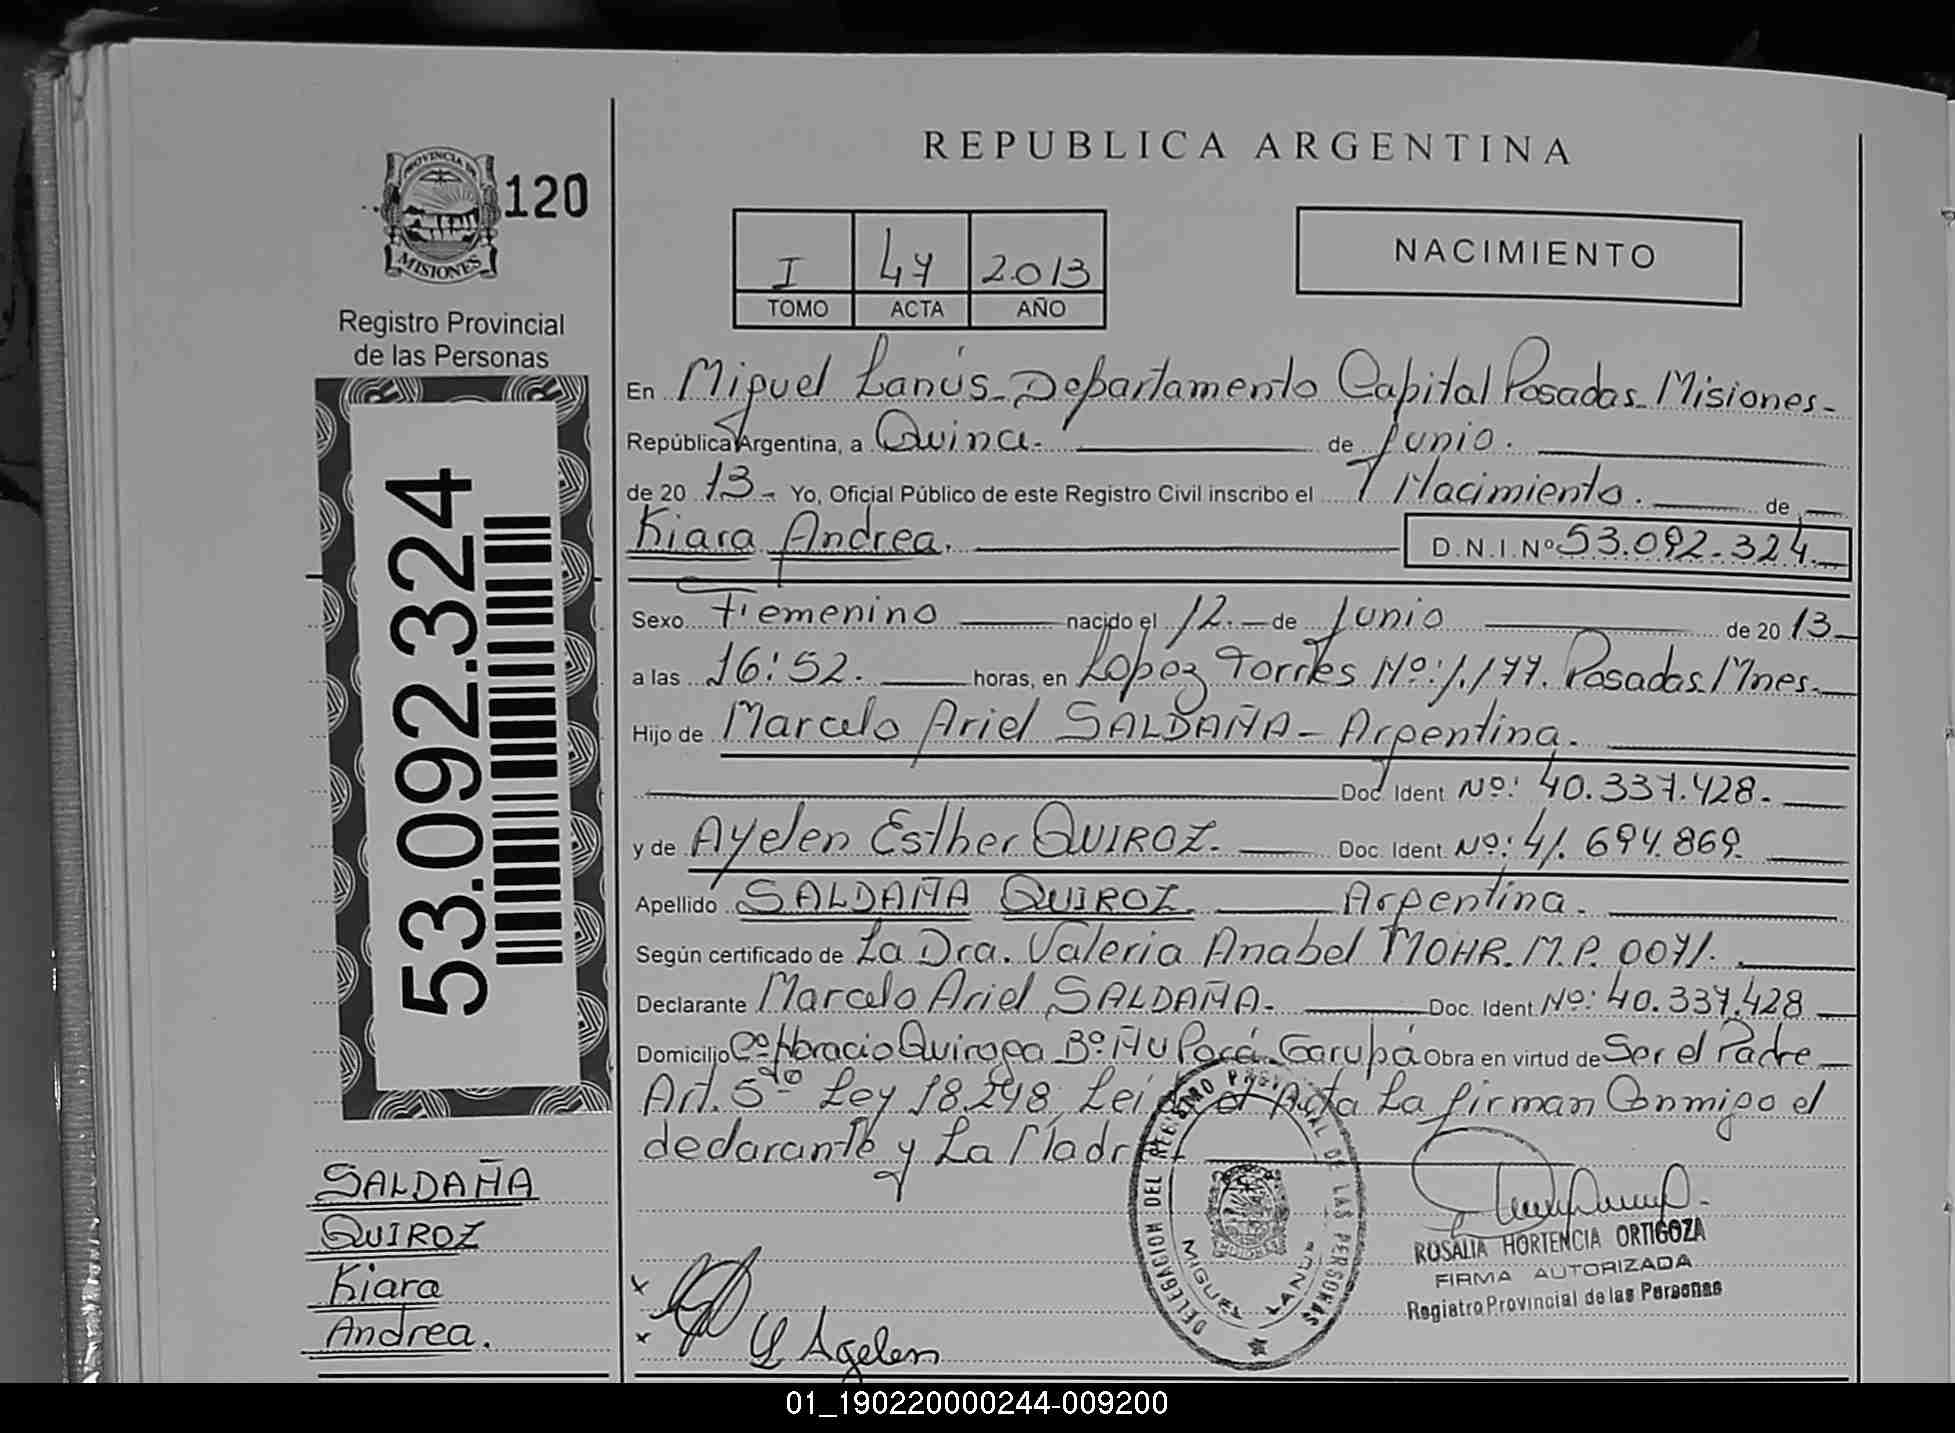 REPUBLICA ARGENTINA
PROVINCIA DE
MISIONES
120
Registro Provincial
de las Personas
I 47 2013
TOMO ACTA AÑO
NACIMIENTO
En Miguel Lanús-Departamento Capital Posadas-Misiones-
República Argentina, a Quince. de Junio.
de 20 13- Yo, Oficial Público de este Registro Civil inscribo el Nacimiento. de
Kiara Andrea. D.N.I.Nº 53.092.324.
Sexo Femenino nacido el 12. de Junio de 20 13
a las 16:52. horas, en Lopez Torres Nº:1.177. Posadas Mnes.
Hijo de Marcelo Ariel SALDAÑA - Argentina.
Doc Ident Nº: 40.337.428.
y de Ayelen Esther QUIROZ. Doc. Ident. Nº: 41.694.869.
Apellido SALDAÑA QUIROZ Argentina.
Según certificado de La Dra. Valeria Anabel MOHR. M.P. 0071.
Declarante Marcelo Ariel SALDAÑA. Doc. Ident Nº: 40.337.428
Domicilio Cº Horacio Quiroga Bº Ñu Porá-Garupá Obra en virtud de Ser el Padre
Art. 5to Ley 18.248 Leí el Acta La firman Conmigo el
declarante y La Madre
53.092.324
SALDAÑA
QUIROZ
Kiara
Andrea.
DELEGACION DEL REGISTRO PROVINCIAL DE LAS PERSONAS
MIGUEL LANUS
ROSALIA HORTENCIA ORTIGOZA
FIRMA AUTORIZADA
Registro Provincial de las Personas
x
x Ayelen
01_190220000244-009200